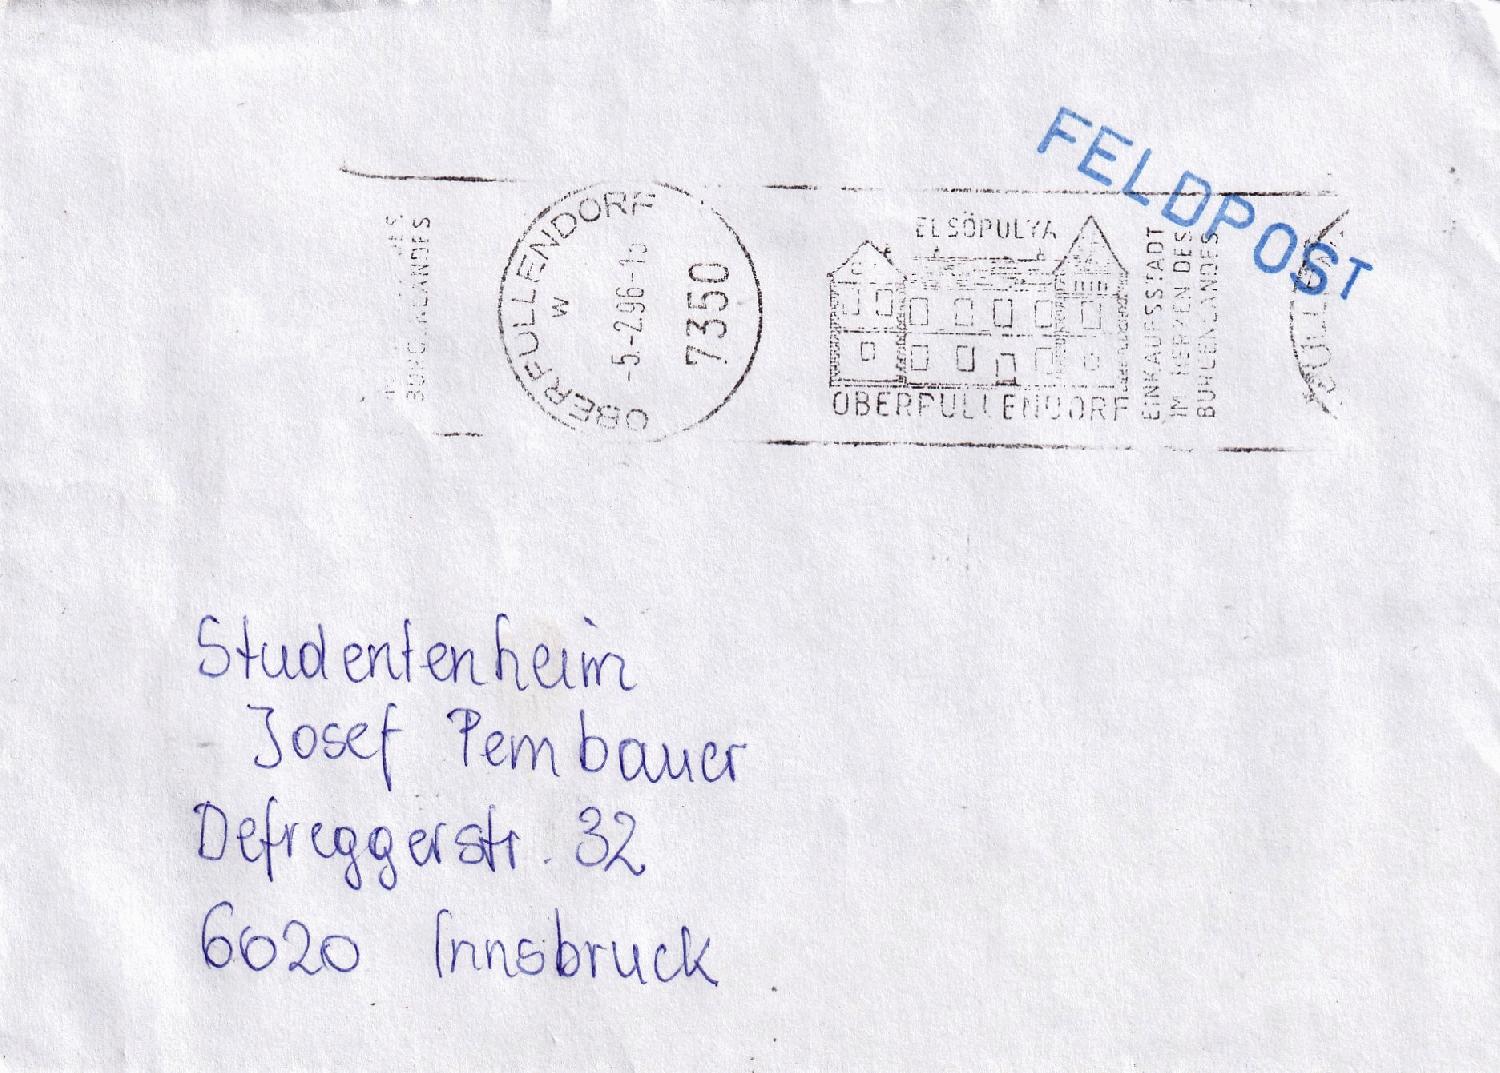 FELDPOST
BURGENLANDES
OBERPULLENDORF
W
-5.-2.96-15
7350
ELSÖPULYA
OBERPULLENDORF
EINKAUFSSTADT
IM HERZEN DES
BURGENLANDES
Studentenheim
Josef Pembauer
Defreggerstr. 32
6020 Innsbruck